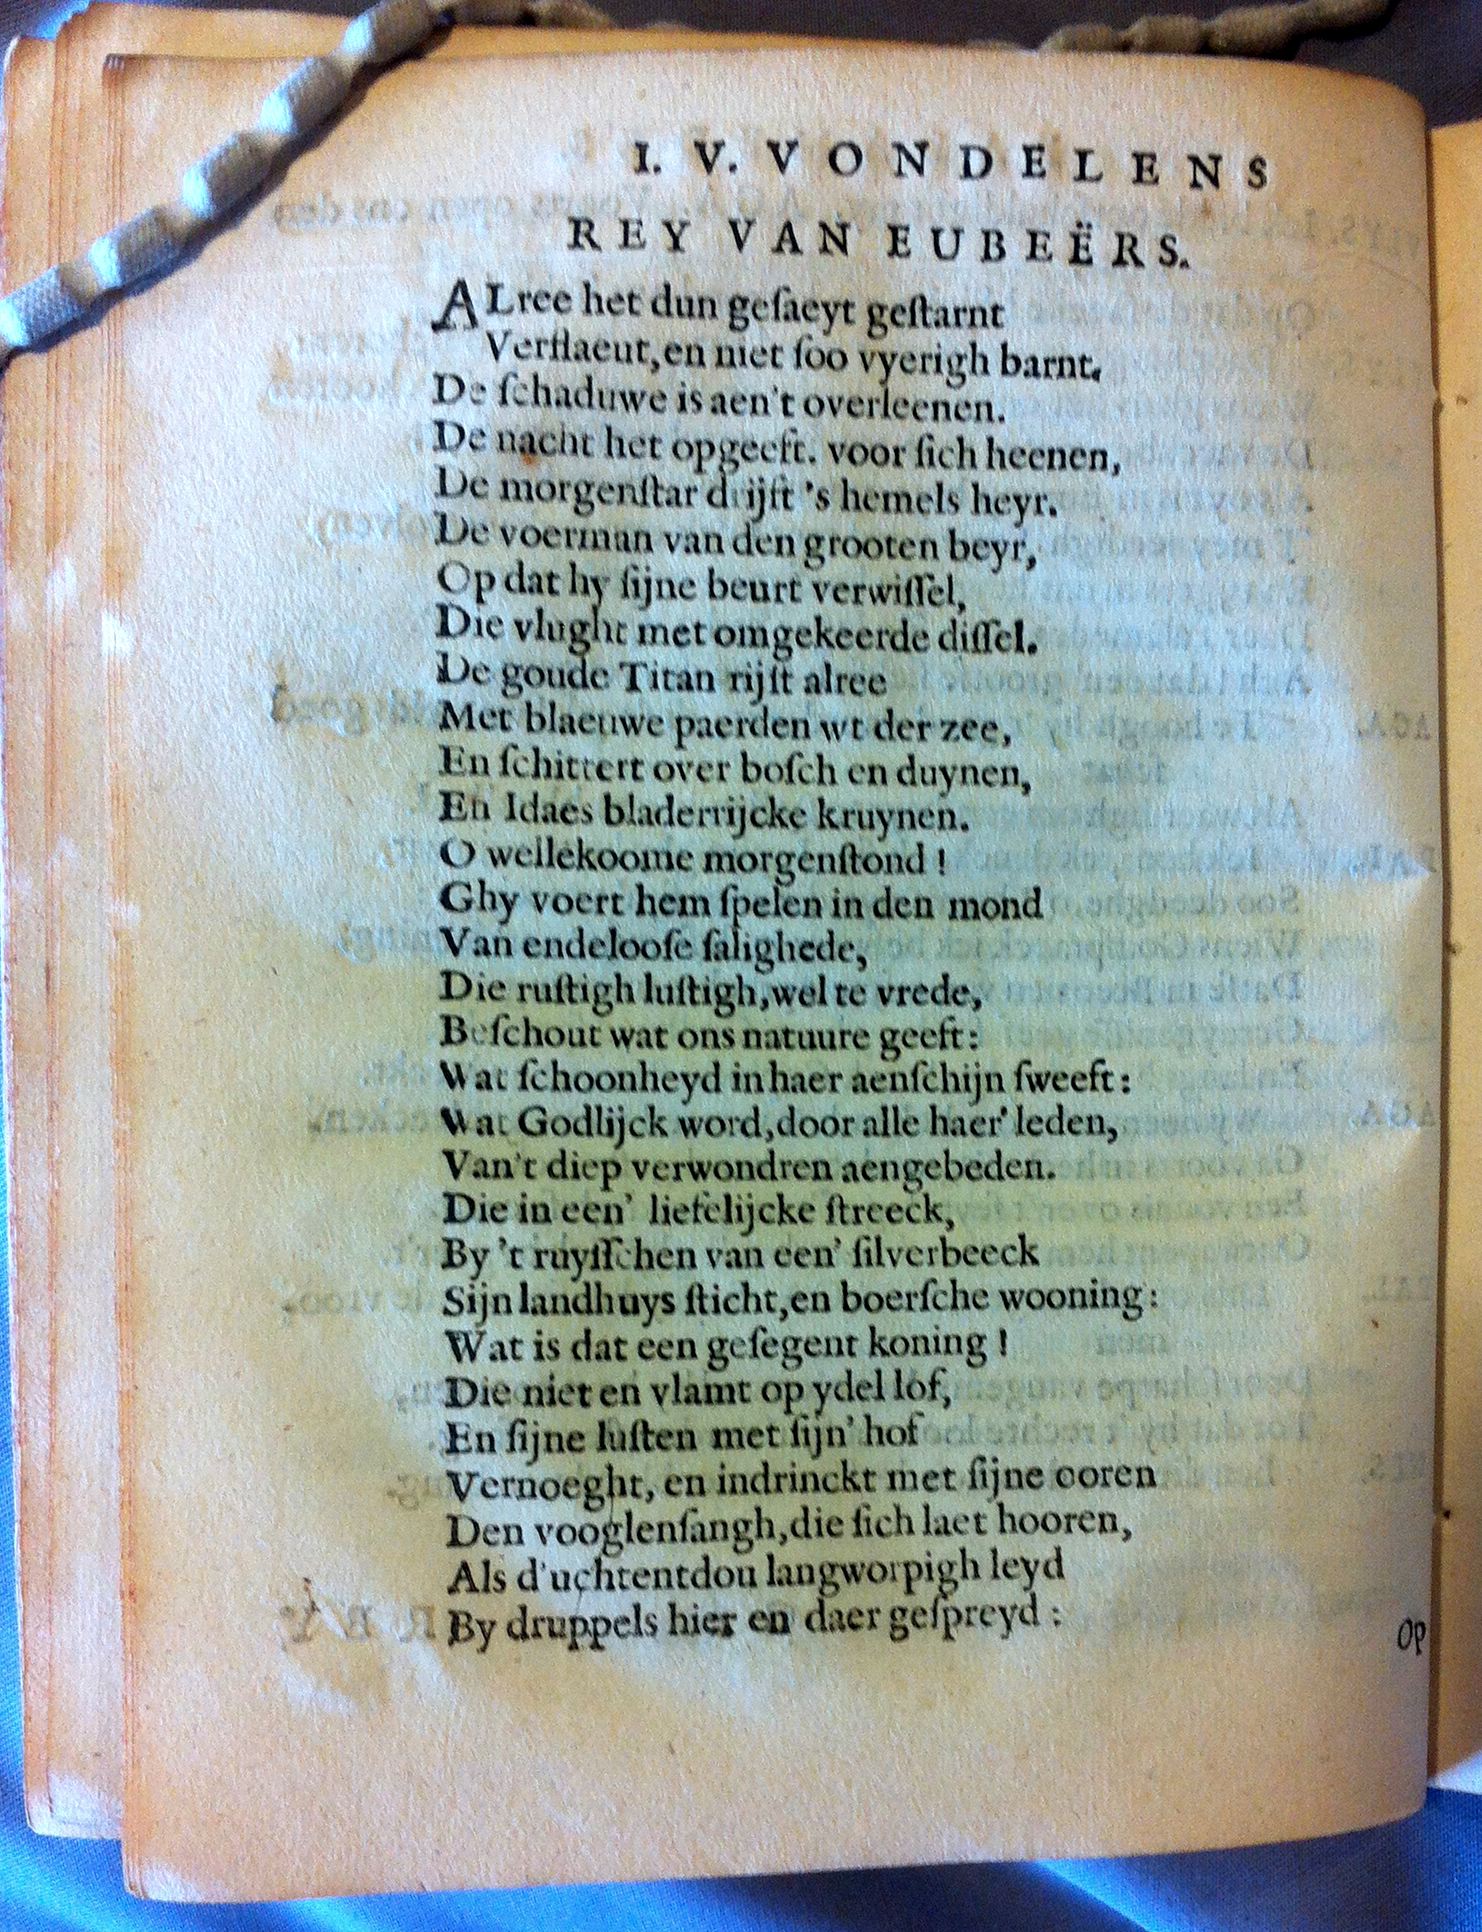 I. V. VONDELENS
REY VAN EUBEËRS.
ALree het dun geſaeyt geſtarnt
Verflaeut, en niet ſoo vyerigh barnt.
De ſchaduwe is aen't overleenen.
De nacht het opgeeft. voor ſich heenen,
De morgenſtar drijft 's hemels heyr.
De voerman van den grooten beyr,
Op dat hy ſijne beurt verwiſſel,
Die vlught met omgekeerde diſſel.
De goude Titan rijſt alree
Met blaeuwe paerden wt der zee,
En ſchittert over boſch en duynen,
En Idaes bladerrijcke kruynen.
O wellekoome morgenſtond !
Ghy voert hem ſpelen in den mond
Van endelooſe ſalighede,
Die ruſtigh luſtigh, wel te vrede,
Beſchout wat ons natuure geeft:
Wat ſchoonheyd in haer aenſchijn ſweeft:
Wat Godlijck word, door alle haer' leden,
Van't diep verwondren aengebeden.
Die in een' liefelijcke ſtreeck,
By 't ruyſſchen van een' ſilverbeeck
Sijn landhuys ſticht, en boerſche wooning:
Wat is dat een geſegent koning !
Die niet en vlamt op ydel lof,
En ſijne luſten met ſijn' hof
Vernoeght, en indrinckt met ſijne ooren
Den vooglenſangh, die ſich laet hooren,
Als d'uchtentdou langworpigh leyd
By druppels hier en daer geſpreyd :
Op